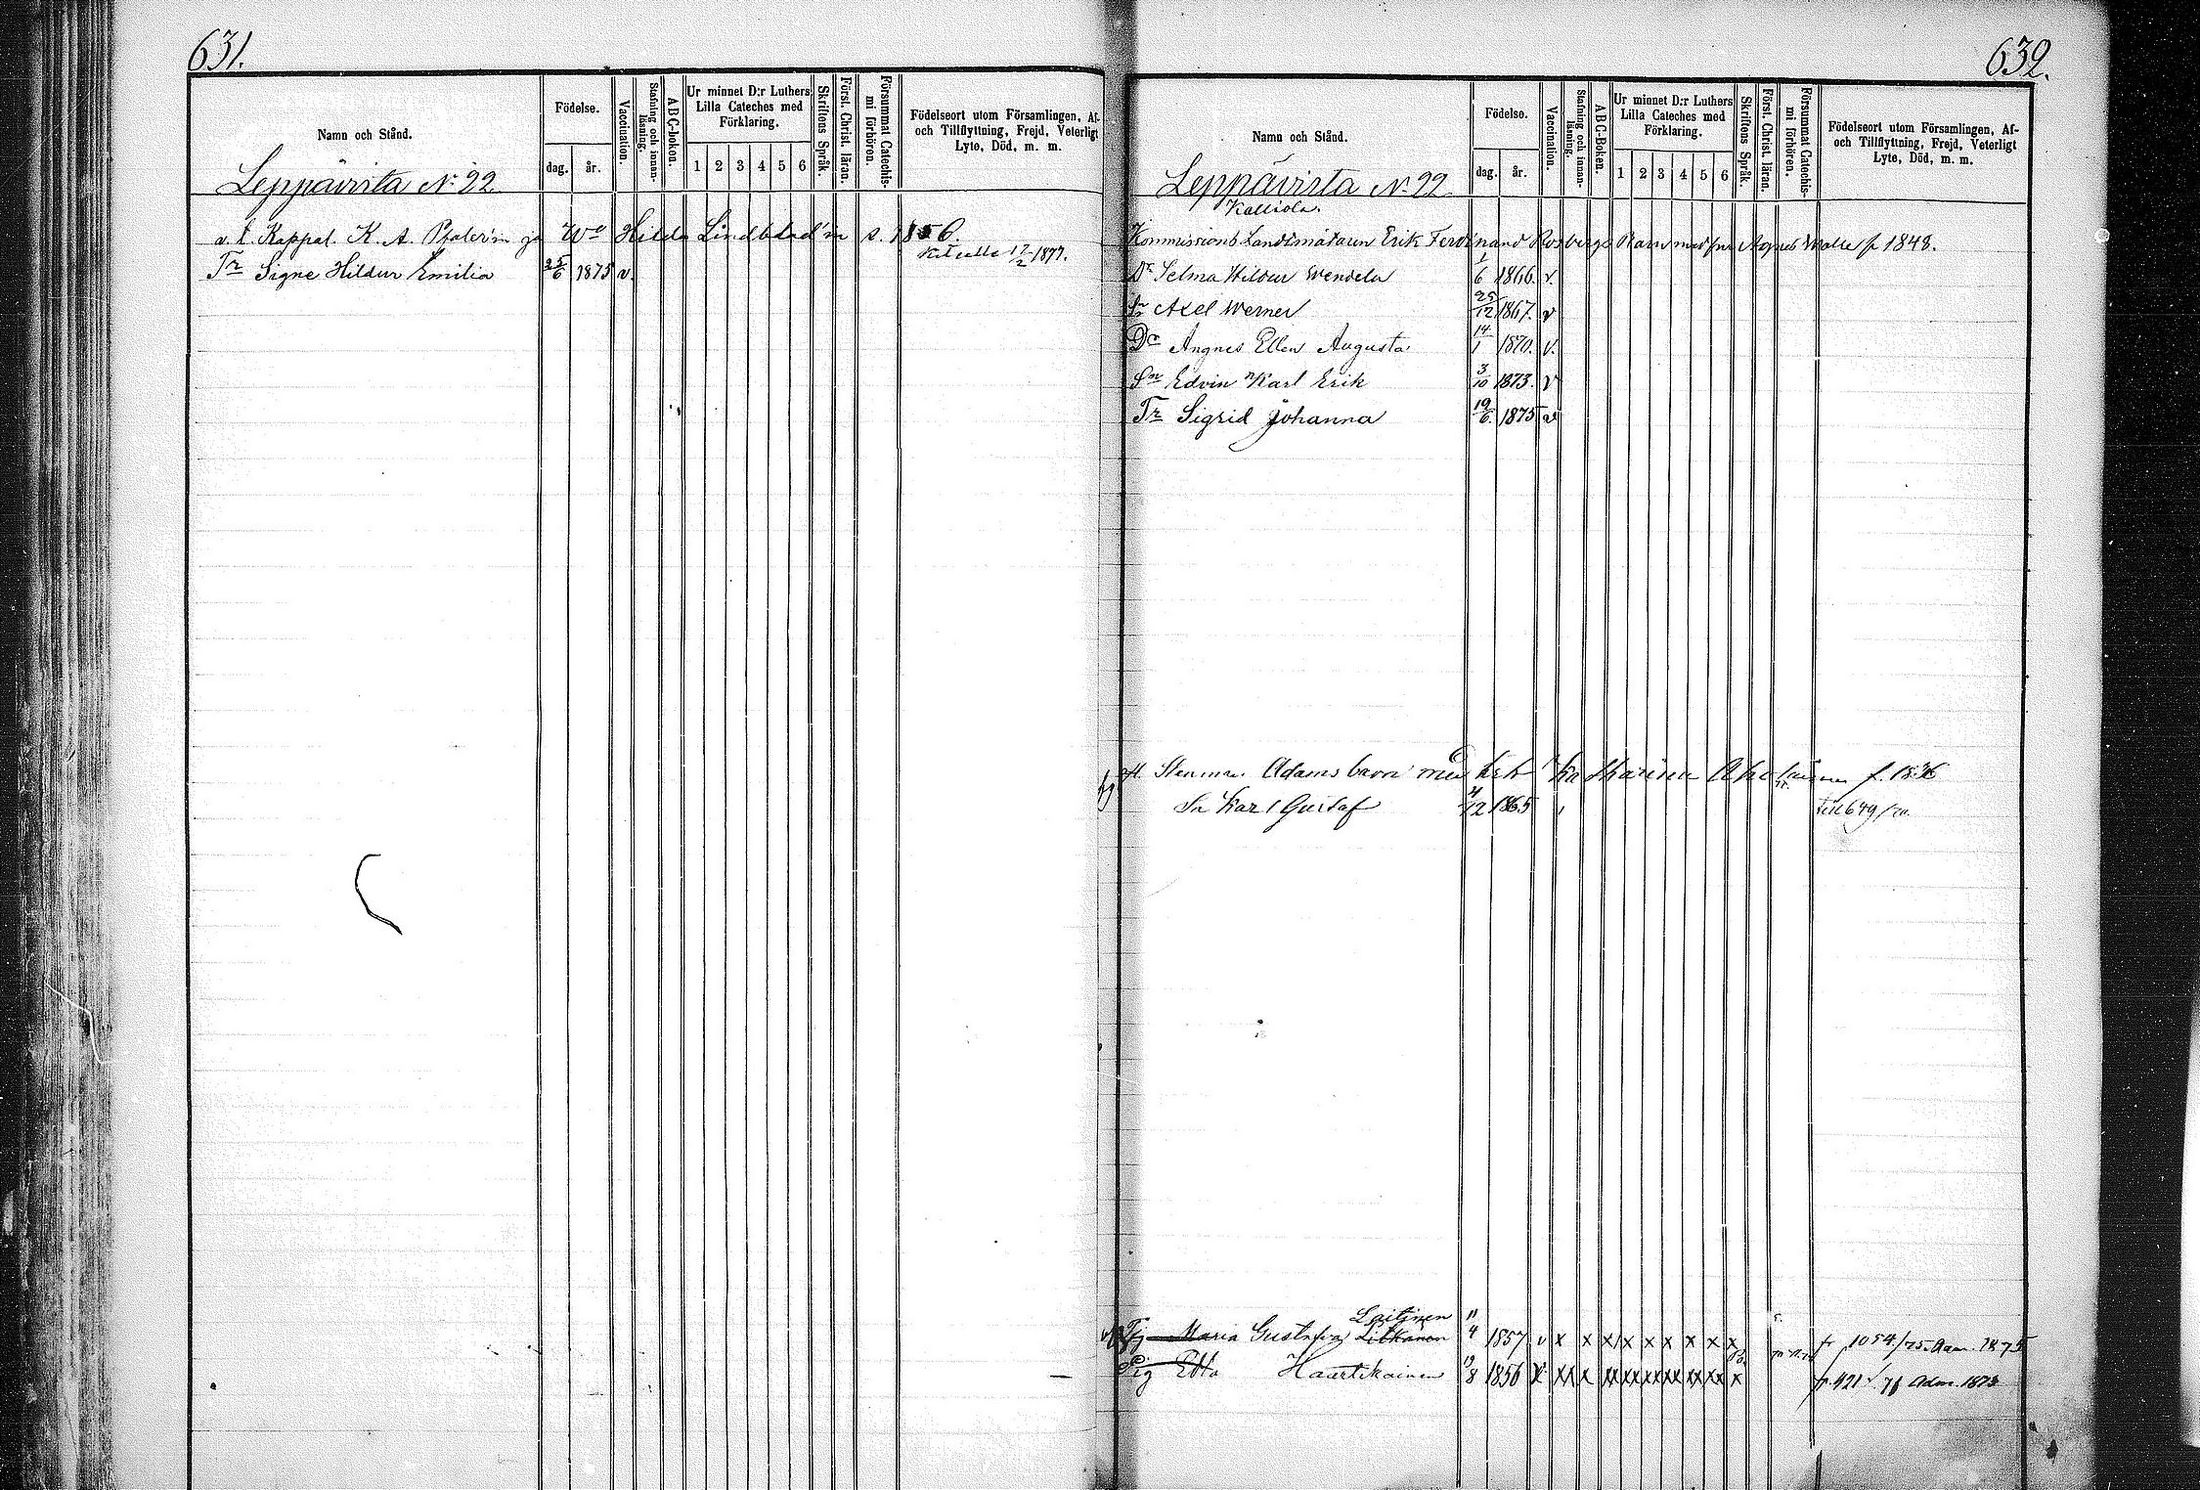 631.
Namn och Stånd.
Födelse.
dag. år.
Vaccination.
Stafning och innan-läsning.
ABC-boken.
Ur minnet D:r Luthers
Lilla Cateches med
Förklaring.
1 2 3 4 5 6
Skriftens Språk.
Först. Christ. läran.
Försummat Catechis-mi förhören.
Födelseort utom Församlingen, Af-
och Tillflyttning, Frejd, Veterligt
Lyte, Död, m. m.
Leppävirta No 22
v. t. Kappal. K. A. ja Wo Hilda Lindblad'in s. 1856
17/2 1877.
Tr Signe Hildur Emilia 25/6 1875 v.
632.
Namn och Stånd.
Födelse.
dag. år.
Vaccination.
Stafning och innan-läsning.
ABC-Boken.
Ur minnet D:r Luthers
Lilla Cateches med
Förklaring.
1 2 3 4 5 6
Skriftens Språk.
Först. Christ. läran.
Försummat Catechis-mi förhören.
Födelseort utom Församlingen, Af-
och Tillflyttning, Frejd, Veterligt
Lyte, Död, m. m.
Leppävirta No 22
Kalliola.
Kommissions Landtmätaren Erik Ferdinand Rosbergs Barn med Agnes f 1848.
Dr Selma Hildur Wendela 1/6 1866. v.
Sn Axel Werner 25/12 1867. v
Dr Angnes Ellen Augusta 14/1 1870. v.
Sn Edvin Karl Erik 3/10 1873. v
Tr Sigrid Johanna 19/6. 1875 v
Adams barn med f. 1836
Sn Karl Gustaf 4/12 1865
649/
Laitinen
Maria Gustafva Litkanen 11/4 1857 v x x x x x x x x x fr 1054/75. 1875
Pig Haartikainen 19/8 1856 fr. 421